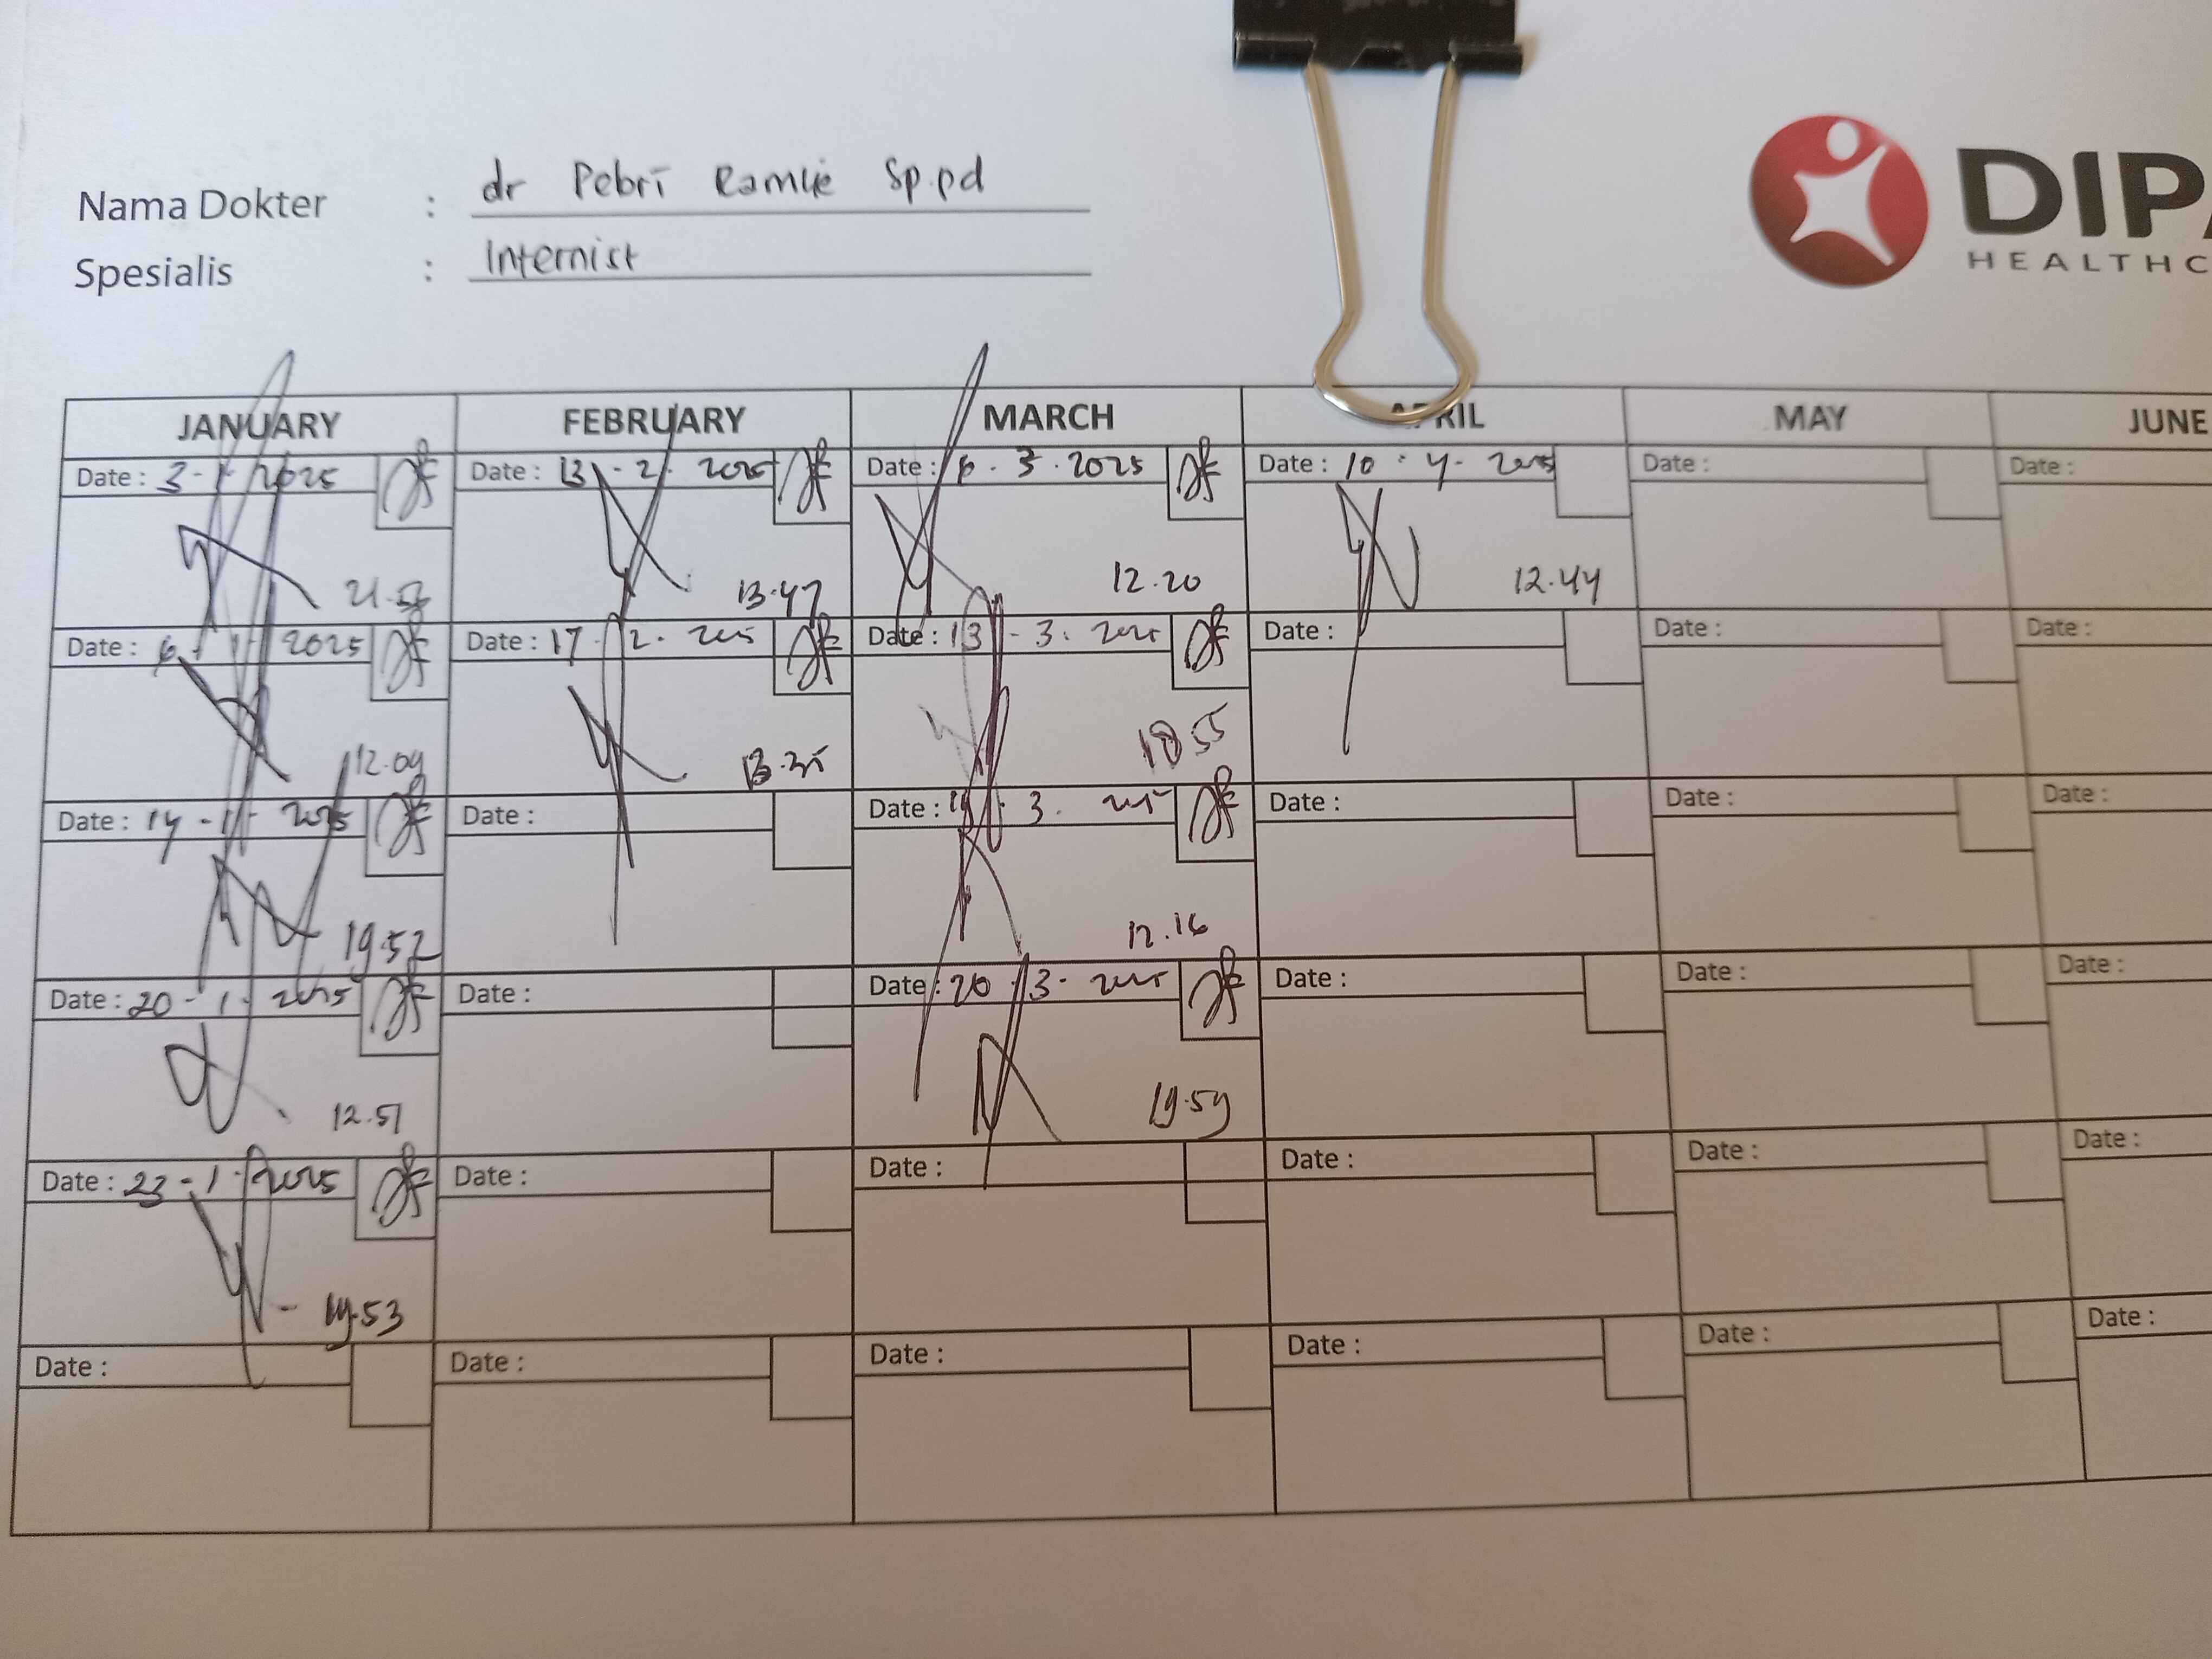 Nama Dokter : dr Pebri Ramlie Sp.pd
Spesialis : Internist
DIPA
HEALTHC
JANUARY FEBRUARY MARCH APRIL MAY JUNE
Date : 3-1-2025 Date : 13-2-2025 Date : 6.3.2025 Date : 10-4-2025 Date : Date :
13.47 12.20 12.44
Date : 6-1-2025 Date : 17-2-2025 Date : 13-3-2025 Date : Date : Date :
12.09 13.35 18 55
Date : 14-1-2025 Date : Date : 3. 2025 Date : Date : Date :
19.52 12.16
Date : 20-1-2025 Date : Date : 20-3-2025 Date : Date : Date :
12.51 19.59
Date : 23-1-2025 Date : Date : Date : Date : Date :
19.53
Date : Date : Date : Date : Date : Date :